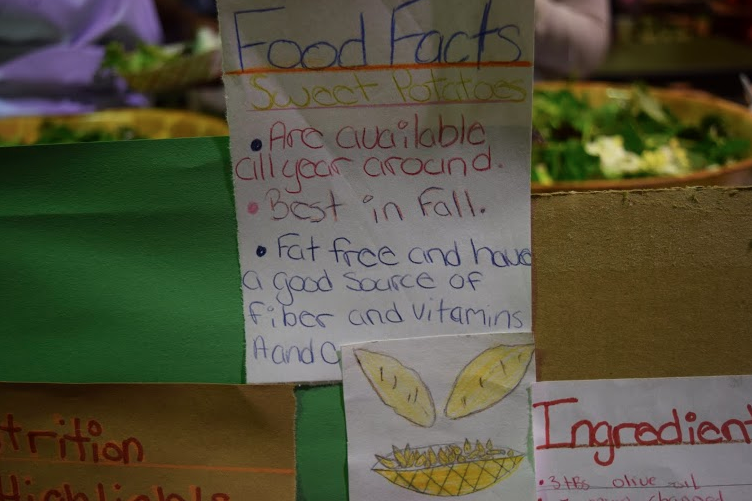 Food Facts
Sweet Potatoes
• Are available
all year around.
• Best in Fall.
• Fat free and have
a good source of
fiber and vitamins
A and C
trition
Highlights
Ingredient
• 3 tbs olive oil